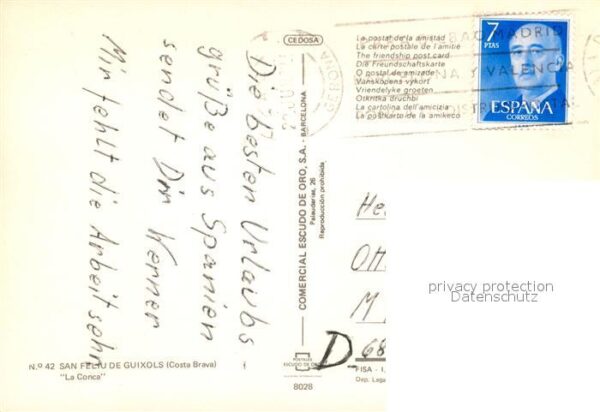 CEDOSA
La postal de la amistad
La carte postale de l'amitie
The friendship post card
Die Freundschaftskarte
O postal de amizade
Vanskapens vykort
Vriendelyke groeten
Otkritka druchbi
La cartolina dell'amicizia
La postkarto de la amikeco
MADRID
Y VALENCIA
7
PTAS
ESPAÑA
CORREOS
Die besten Urlaubs
grüße aus Spanien
sendet Dir Werner
Mir fehlt die Arbeit sehr
COMERCIAL ESCUDO DE ORO, S.A. - BARCELONA
Palaudarias, 26
Reproducción prohibida
He
OH
M
D-68
privacy protection
Datenschutz
N.º 42 SAN FELIU DE GUIXOLS (Costa Brava)
"La Conca"
POSTALES
ESCUDO DE ORO
8028
FISA - I.
Dep. Lega